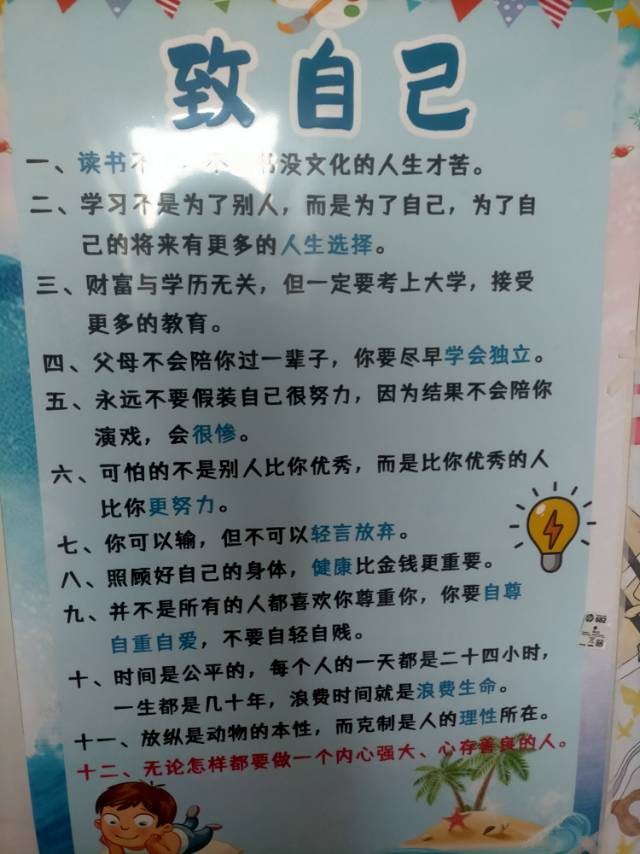 致自己
一、读书不 不 书没文化的人生才苦。
二、学习不是为了别人，而是为了自己，为了自
己的将来有更多的人生选择。
三、财富与学历无关，但一定要考上大学，接受
更多的教育。
四、父母不会陪你过一辈子，你要尽早学会独立。
五、永远不要假装自己很努力，因为结果不会陪你
演戏，会很惨。
六、可怕的不是别人比你优秀，而是比你优秀的人
比你更努力。
七、你可以输，但不可以轻言放弃。
八、照顾好自己的身体，健康比金钱更重要。
九、并不是所有的人都喜欢你尊重你，你要自尊
自重自爱，不要自轻自贱。
十、时间是公平的，每个人的一天都是二十四小时，
一生都是几十年，浪费时间就是浪费生命。
十一、放纵是动物的本性，而克制是人的理性所在。
十二、无论怎样都要做一个内心强大、心存善良的人。